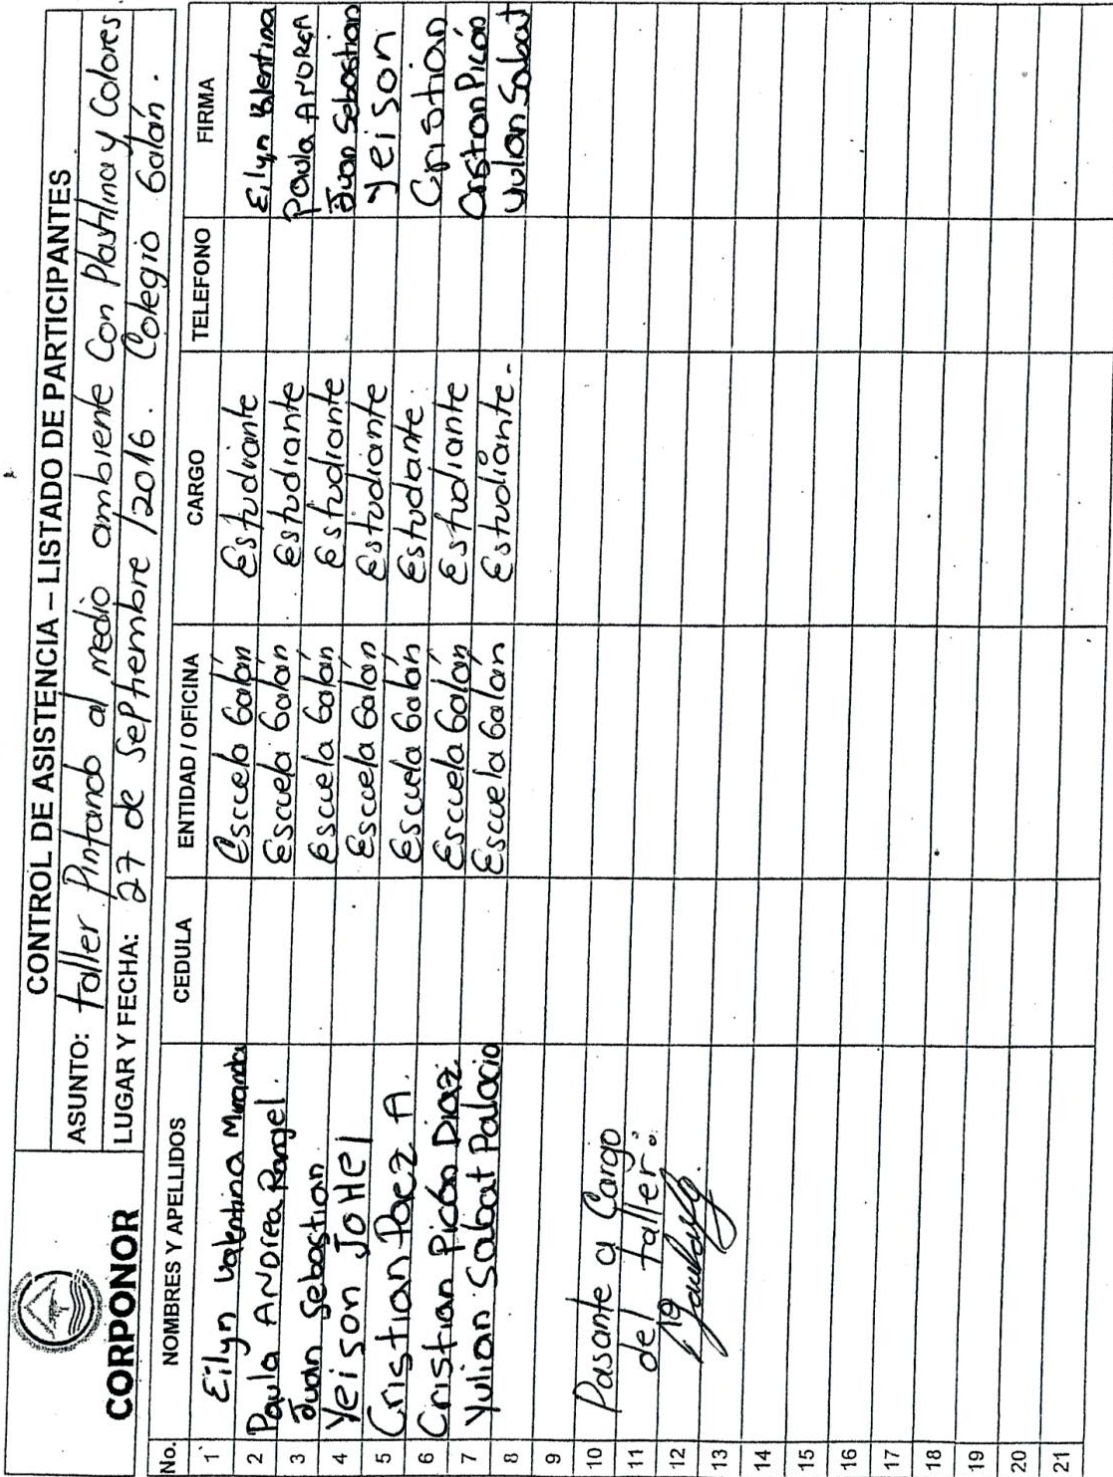 CORPONOR
CONTROL DE ASISTENCIA – LISTADO DE PARTICIPANTES
ASUNTO: taller Pintando al medio ambiente Con Plastilina y Colores
LUGAR Y FECHA: 27 de Septiembre /2016. Colegio Galán.
No. NOMBRES Y APELLIDOS CEDULA ENTIDAD / OFICINA CARGO TELEFONO FIRMA
1 Eilyn Valentina Miranda Escuela Galán Estudiante Eilyn Valentina
2 Paula ANDrea Rangel. Escuela Galán Estudiante Paula ANDREA
3 Juan Sebastian Escuela Galán Estudiante Juan Sebastian
4 Yeison JoHel Escuela Galán Estudiante Yeison
5 Cristian Paez A. Escuela Galán Estudante. Cristian
6 Cristian Picón Diaz. Escuela Galán Estudiante Cristan Picón
7 Yulian Sabat Palacio Escuela Galán Estudiante. Yulan Sabat
8
9
10 Pasante a Cargo
11 del taller:
12
13
14
15
16
17
18
19
20
21